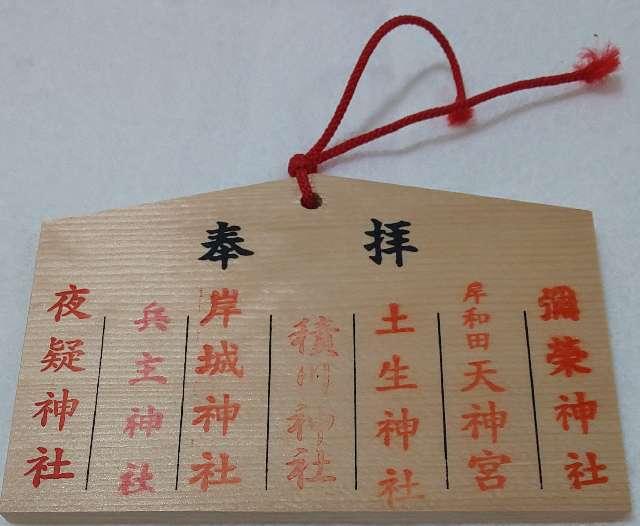 奉拝
彌榮神社
岸和田天神宮
土生神社
積川神社
岸城神社
兵主神社
夜疑神社